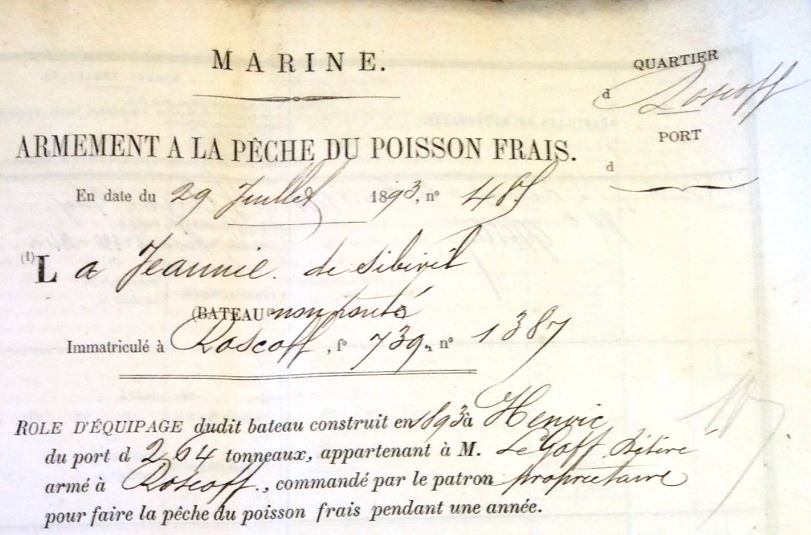 MARINE.
QUARTIER
d Roscoff
PORT
d
ARMEMENT A LA PÊCHE DU POISSON FRAIS.
En date du 29 Juillet 1893, nº
(1) La Jeannie. de Sibiril
(BATEAU non ponté
Immatriculé à Roscoff, fº 739. nº 1387
ROLE D'ÉQUIPAGE dudit bateau construit en 1893 à Henvic
du port d 2,64 tonneaux, appartenant à M. Le Goff
armé à Roscoff, commandé par le patron propriétaire
pour faire la pêche du poisson frais pendant une année.